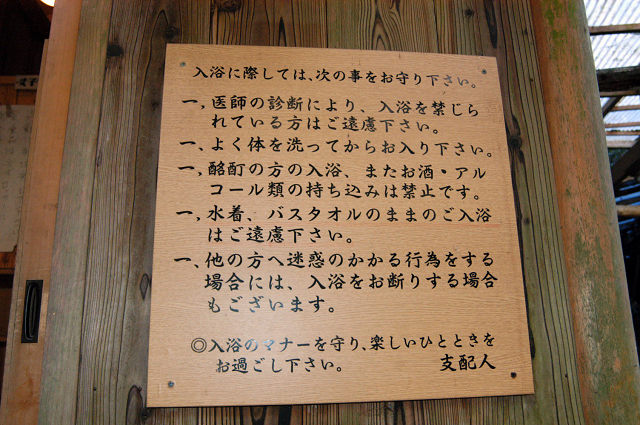 入浴に際しては、次の事をお守り下さい。
一、医師の診断により、入浴を禁じら
れている方はご遠慮下さい。
一、よく体を洗ってからお入り下さい。
一、酩酊の方の入浴、またお酒・アル
コール類の持ち込みは禁止です。
一、水着、バスタオルのままのご入浴
はご遠慮下さい。
一、他の方へ迷惑のかかる行為をする
場合には、入浴をお断りする場合
もございます。
◎入浴のマナーを守り、楽しいひとときを
お過ごし下さい。 支配人